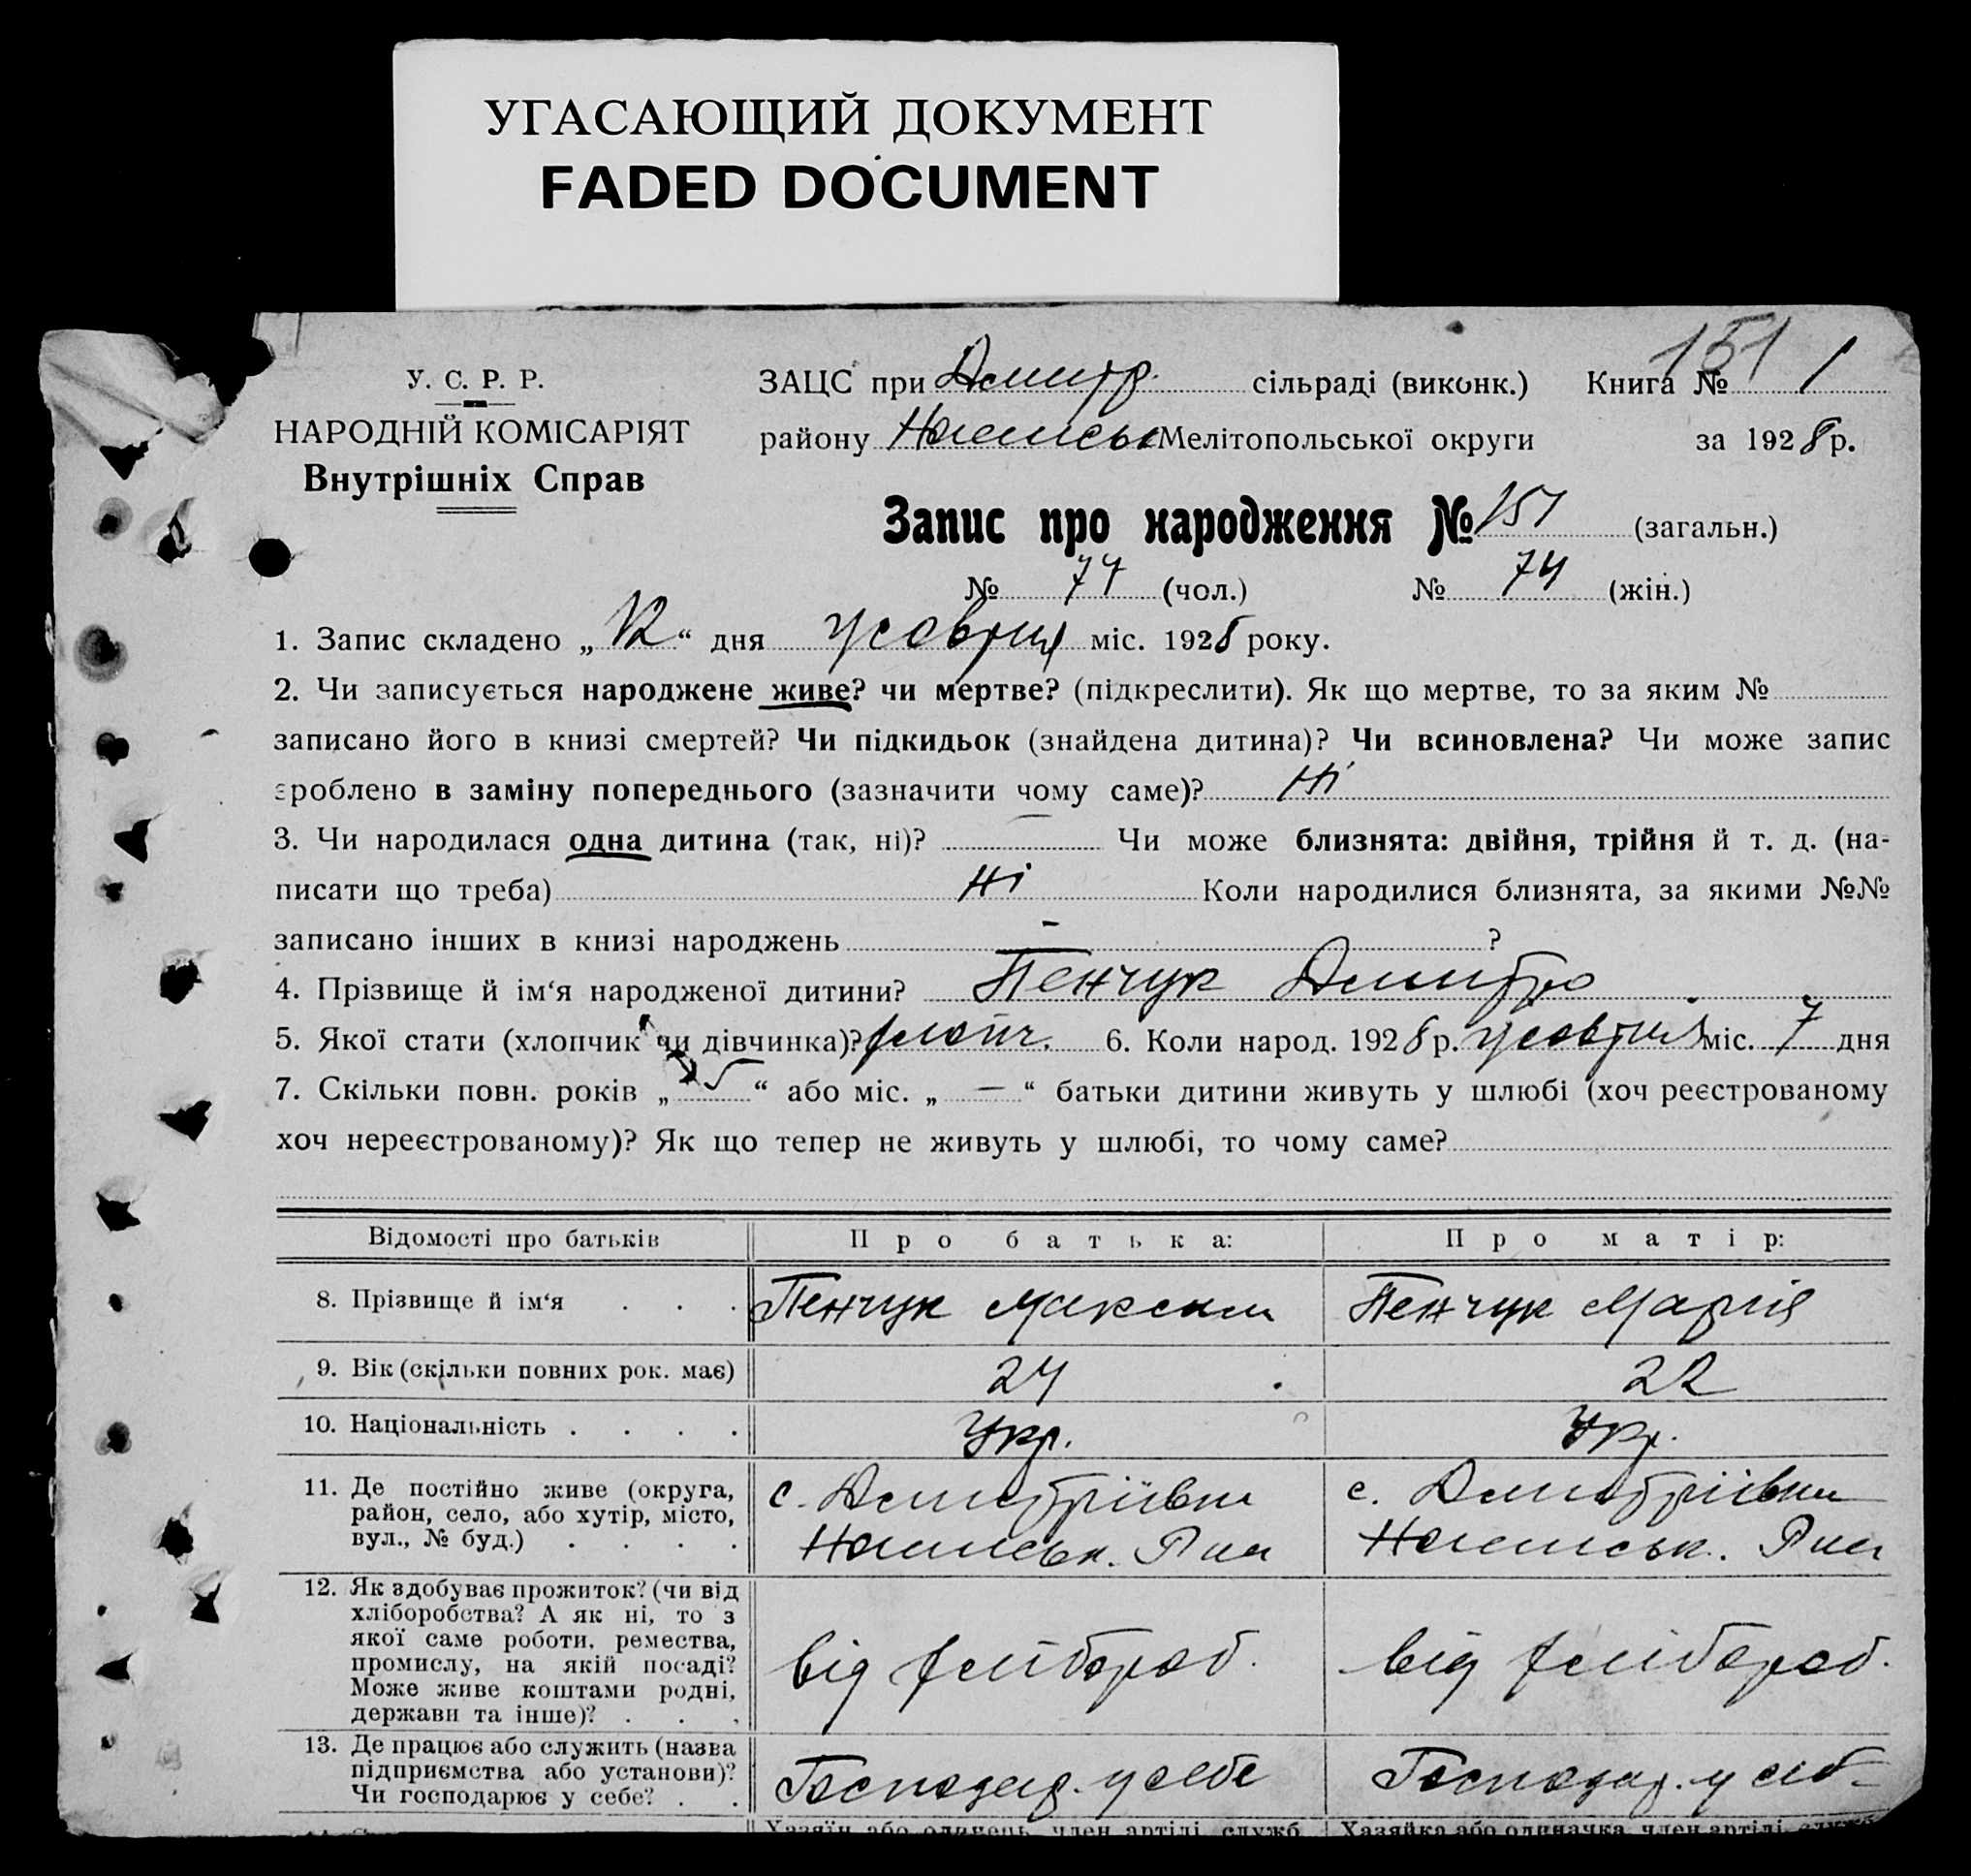 УГАСАЮЩИЙ ДОКУМЕНТ
FADED DOCUMENT
151
У. С. Р. Р.
НАРОДНІЙ КОМІСАРІЯТ
Внутрішніх Справ
ЗАЦС при Дмитр. сільраді (виконк.) Книга № 1
району Мелітопольської округи за 1928 р.
Запис про народження № 151 (загальн.)
№ 77 (чол.) № 74 (жін.)
1. Запис складено „12“ дня жовтня міс. 1928 року.
2. Чи записується народжене живе? чи мертве? (підкреслити). Як що мертве, то за яким №
записано його в книзі смертей? Чи підкидьок (знайдена дитина)? Чи всиновлена? Чи може запис
зроблено в заміну попереднього (зазначити чому саме)? Ні
3. Чи народилася одна дитина (так, ні)? Чи може близнята: двійня, трійня й т. д. (на-
писати що треба) Ні Коли народилися близнята, за якими №№
записано інших в книзі народжень - ?
4. Прізвище й ім‘я народженої дитини? Пенчук Дмитро
5. Якої стати (хлопчик чи дівчинка)? хлопч. 6. Коли народ. 1928 р. жовтня міс. 7 дня
7. Скільки повн. років „5“ або міс. „—“ батьки дитини живуть у шлюбі (хоч реєстрованому
хоч нереєстрованому)? Як що тепер не живуть у шлюбі, то чому саме?
Відомості про батьків Про батька: Про матір:
8. Прізвище й ім‘я . . . Пенчук Максим Пенчук Марія
9. Вік (скільки повних рок. має) 24 22
10. Національність . . . . Укр. Укр.
11. Де постійно живе (округа,
район, село, або хутір, місто,
вул., № буд.) . . . .
с. Дмитріівка
Р на
с. Дмитріівка
Р на
12. Як здобуває прожиток? (чи від
хліборобства? А як ні, то з
якої саме роботи, ремества,
промислу, на якій посаді?
Може живе коштами родні,
держави та інше)? . . .
від хлібороб.
від хлібороб.
13. Де працює або служить (назва
підприємства або установи)?
Чи господарює у себе? . .
Господар. у себе
Господар. у себ
Хазяїн або одинець, член артілі, служб. Хазяйка або одиначка, член артілі,